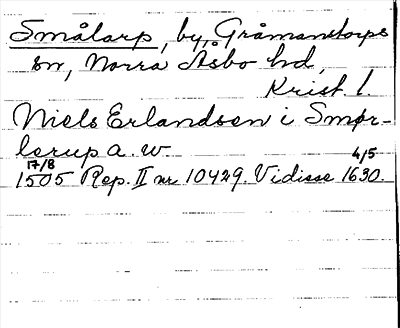 Smålarp, by, Gråmanstorps
sn, Norra Åsbo hd,
Krist. l.
Niels Erlandsen i Smør-
lerup a. w.
17/8 4/5
1505 Rep. II nr 10429. Vidisse 1630.